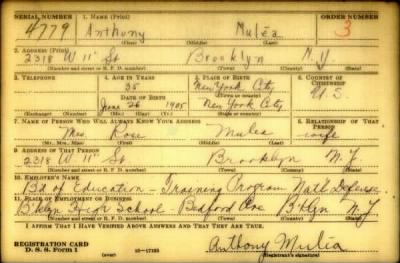 SERIAL NUMBER 1. NAME (Print) ORDER NUMBER
4779 Anthony Mulea 3
(First) (Middle) (Last)
2. ADDRESS (Print)
2318 W 11" St Brooklyn N.Y.
(Number and street or R. F. D. number) (Town) (County) (State)
3. TELEPHONE 4. AGE IN YEARS 5. PLACE OF BIRTH 6. COUNTRY OF CITIZENSHIP
35 New York City U S
DATE OF BIRTH (Town or county)
June 26 1905 New York City
(Exchange) (Number) (Mo.) (Day) (Yr.) (State or country)
7. NAME OF PERSON WHO WILL ALWAYS KNOW YOUR ADDRESS 8. RELATIONSHIP OF THAT PERSON
Mrs. Rose Mulea wife
(Mr., Mrs., Miss) (First) (Middle) (Last)
9. ADDRESS OF THAT PERSON
2318 W 11" St Brooklyn N.Y.
(Number and street or R. F. D. number) (Town) (County) (State)
10. EMPLOYER'S NAME
Bd of Education - Training Program Nat'l Defense
11. PLACE OF EMPLOYMENT OR BUSINESS
B'klyn High School Bedford Ave B'klyn N.Y.
(Number and street or R. F. D. number) (Town) (County) (State)
I AFFIRM THAT I HAVE VERIFIED ABOVE ANSWERS AND THAT THEY ARE TRUE.
REGISTRATION CARD
D. S. S. Form 1 (over) 16-17105 Anthony Mulea
(Registrant's signature)